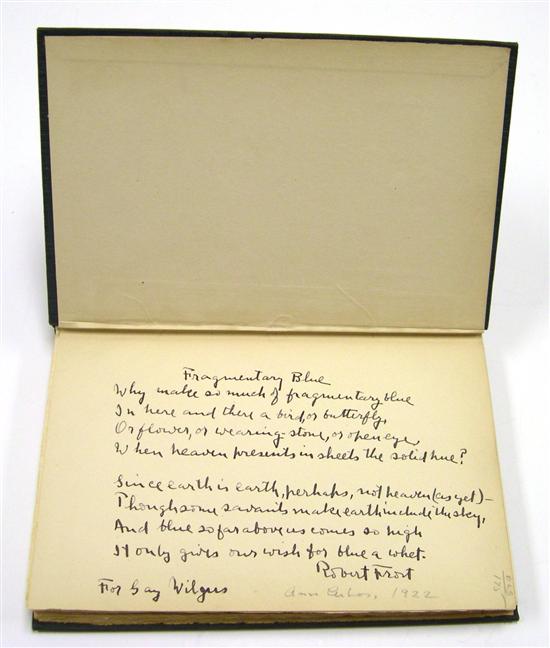 Fragmentary Blue
Why make so much of fragmentary blue
In here and there a bird, or butterfly,
Or flower, or wearing-stone, or open eye,
When heaven presents in sheets the solid hue?
Since earth is earth, perhaps, not heaven (as yet) –
Though some savants make earth include the sky,
And blue so far above us comes so high
It only gives our wish for blue a whet.
Robert Frost
For Gay Wilgus
Ann 1922